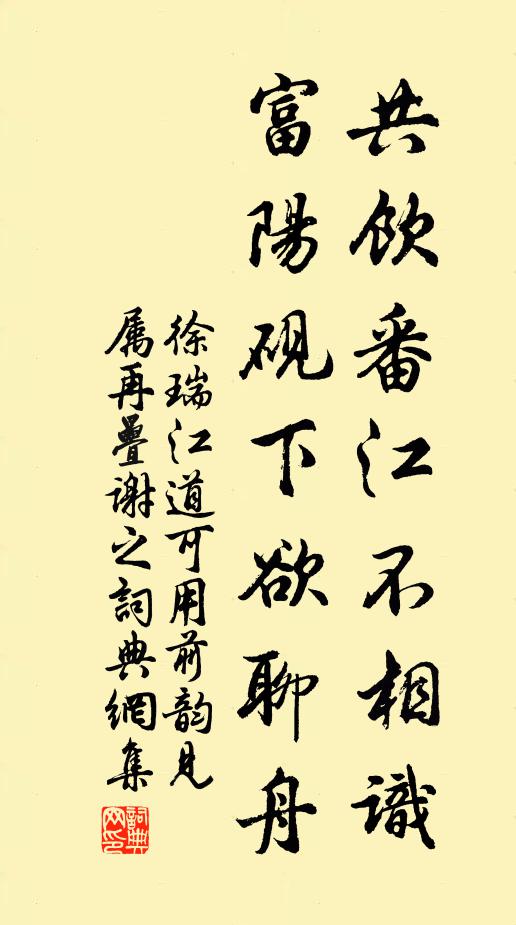 共飲番江不相識
富陽硯下欲聊舟
徐瑞江道可用前韵見
屬再疊謝之詞典網集
詞典
网印